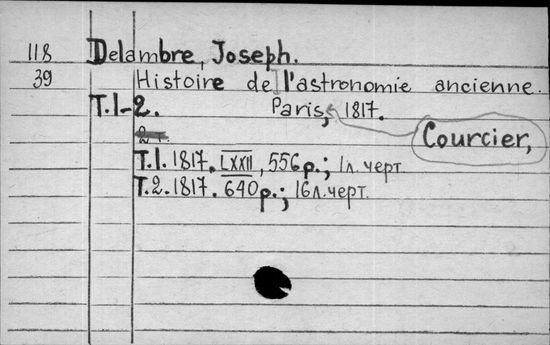 118 Delambre, Joseph.
39 Histoire de l'astronomie ancienne.
T.1-2. Paris, 1817.
Courcier,
2 т.
T.1. 1817. LXXII, 556 p.; 1 л. черт.
T.2. 1817. 640 p.; 16 л. черт.